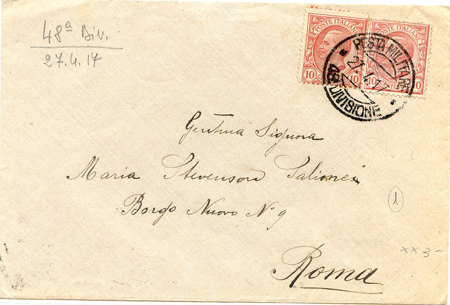 48ª Div.
27.4.17
POSTE ITALIANE
POSTE ITALIANE
10
10
10
POSTA MILITARE
27.4.17
48 DIVISIONE
Gentma Signora
Maria Stevenson Salimei
Borgo Nuovo Nº 9
Roma
1
xx 3-